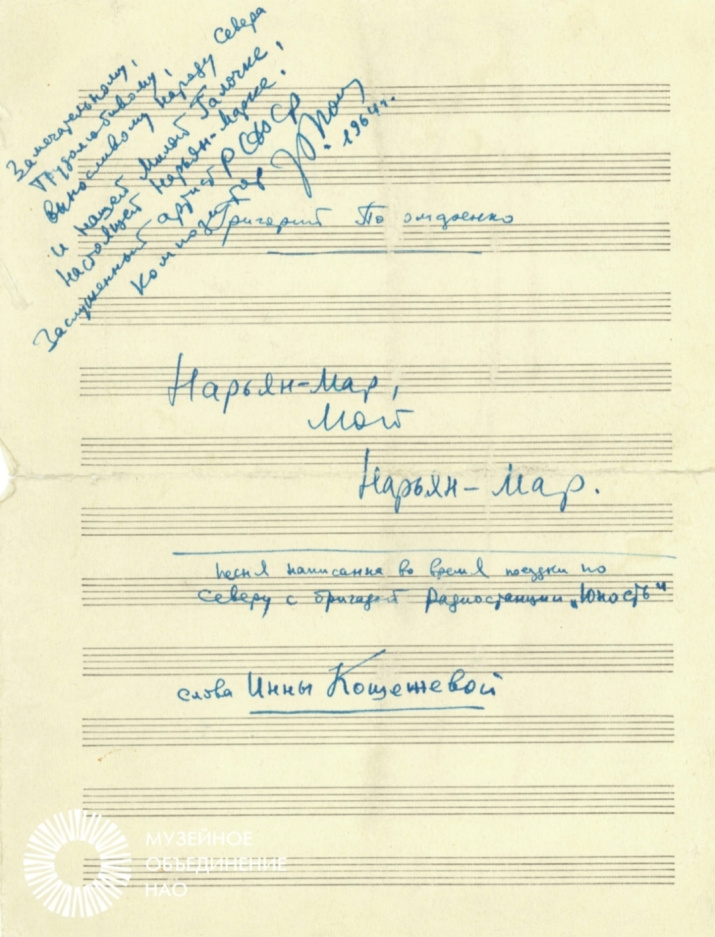 Замечательному,
Трудолюбивому,
выносливому народу Севера
и нашей милой Галочке,
настоящей Нарьян-Марке!
Заслуженный артист РСФСР
Композитор
1964 г.
Григорий Пономаренко
Нарьян-Мар,
мой
Нарьян-Мар.
Песня написанна во время поездки по
Северу с бригадой Радиостанции „Юность"
слова Инны Кошежевой
МУЗЕЙНОЕ
ОБЪЕДИНЕНИЕ
НАО